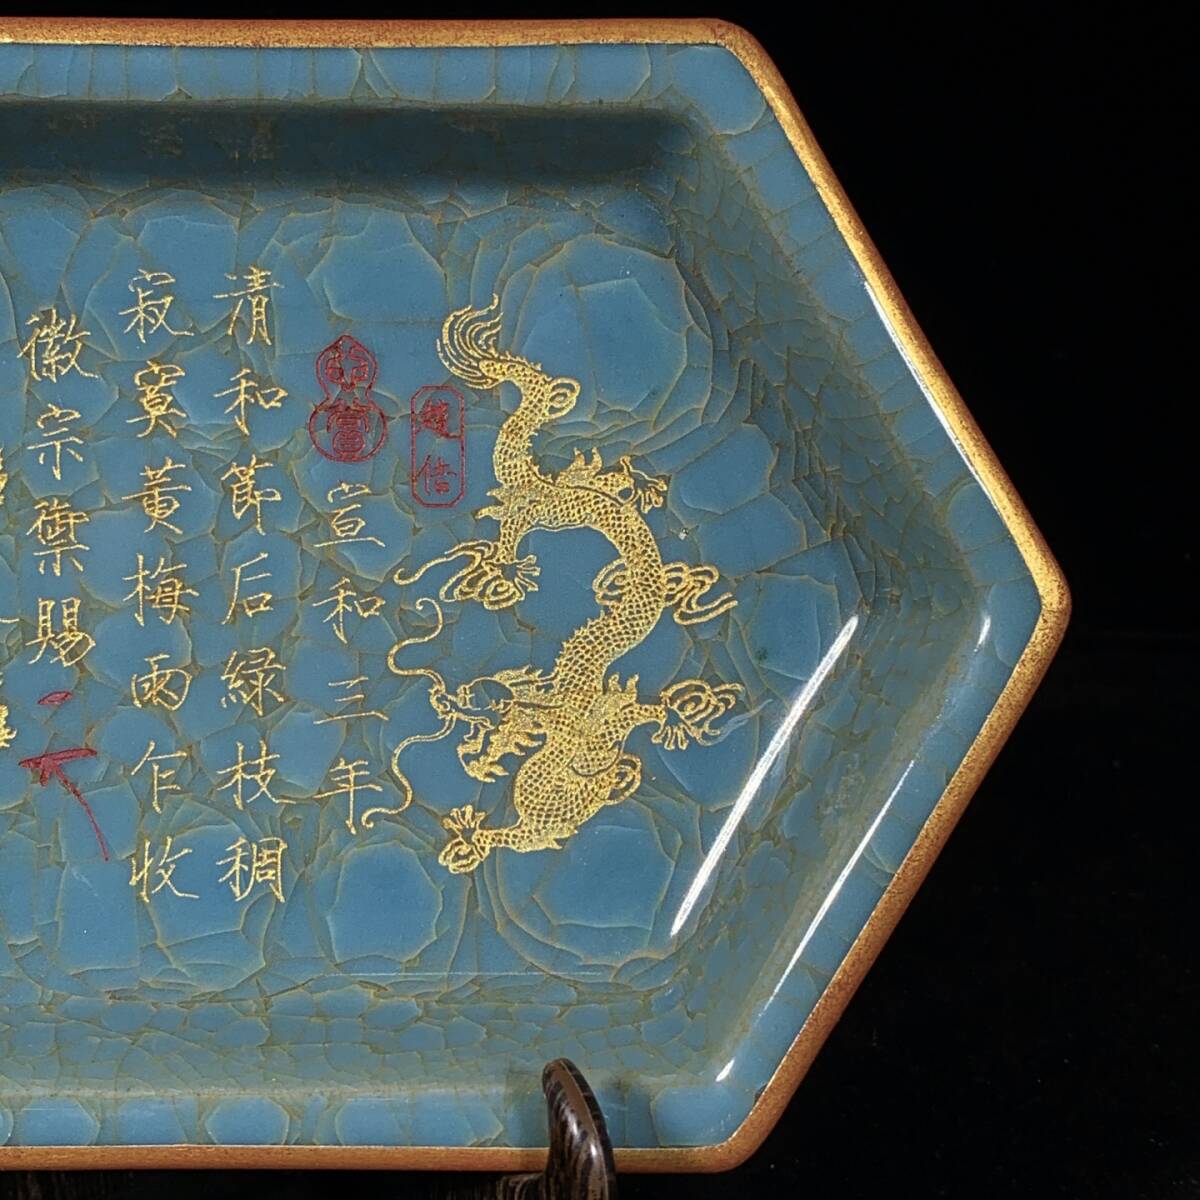 宣和三年
清和節后綠枝稠
寂寞黄梅雨乍收
徽宗御賜